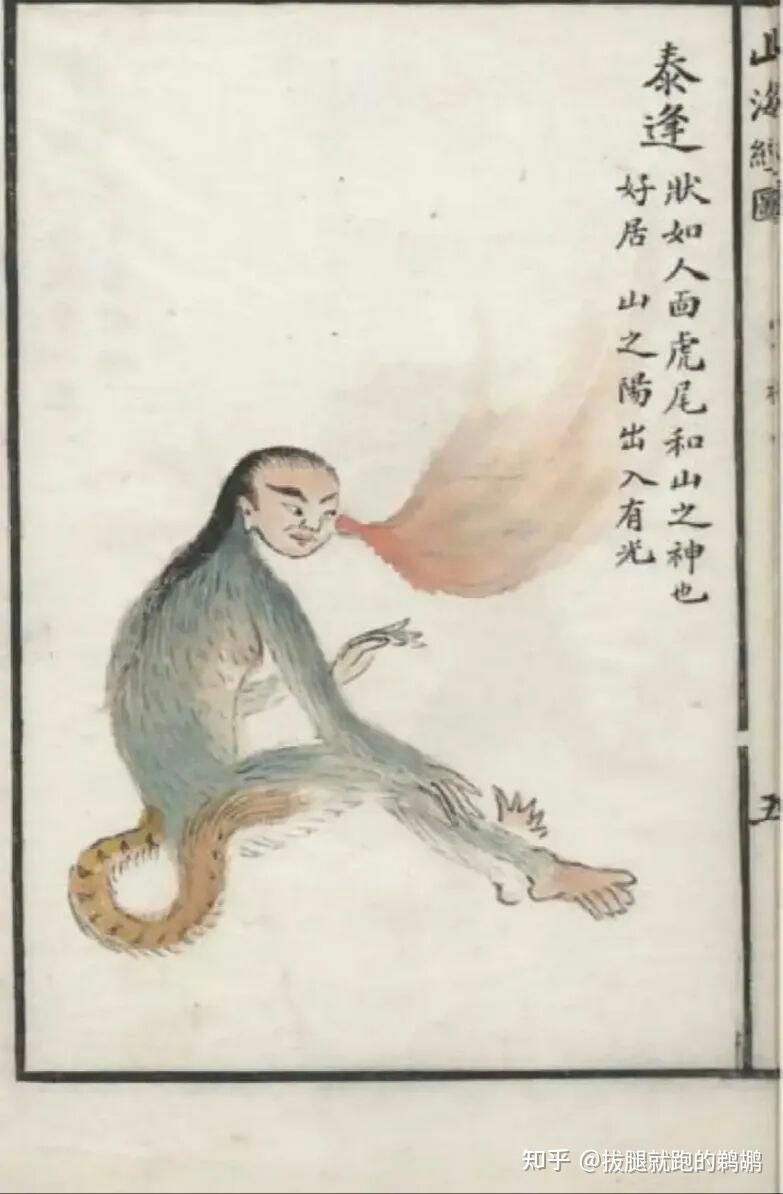 山海經圖
五
泰逢
狀如人面虎尾和山之神也
好居 山之陽出入有光
知乎 @拔腿就跑的鹈鹕